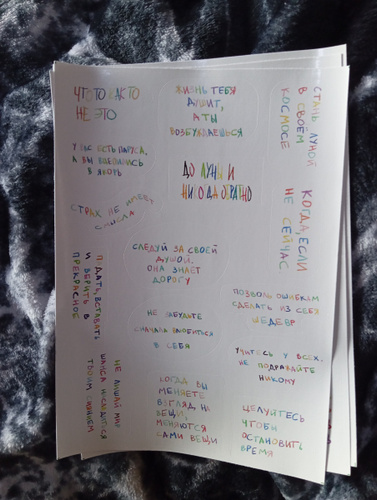 ЧТО-ТО КАК-ТО
НЕ ЭТО
ЖИЗНЬ ТЕБЯ
ДУШИТ,
А ТЫ
ВОЗБУЖДАЕШЬСЯ
СТАНЬ ЛУНОЙ
В СВОЁМ
КОСМОСЕ
У НАС ЕСТЬ ПАРУСА,
А ВЫ ВЦЕПИЛИСЬ
В ЯКОРЬ
ДО ЛУНЫ И
НИКОГДА ОБРАТНО
КОГДА, ЕСЛИ
НЕ СЕЙЧАС
СТРАХ НЕ ИМЕЕТ
СМЫСЛА
СЛЕДУЙ ЗА СВОЕЙ
ДУШОЙ,
ОНА ЗНАЕТ
ДОРОГУ
ПАДАТЬ, ВСТАВАТЬ
И ВЕРИТЬ В
ПРЕКРАСНОЕ
НЕ ЗАБУДЬТЕ
СНАЧАЛА ВЛЮБИТЬСЯ
В СЕБЯ
ПОЗВОЛЬ ОШИБКАМ
СДЕЛАТЬ ИЗ СЕБЯ
ШЕДЕВР
УЧИТЕСЬ У ВСЕХ,
НЕ ПОДРАЖАЙТЕ
НИКОМУ
НЕ ЛИШАЙ МИР
ШАНСА НАСЛАДИТЬСЯ
ТВОИМ СИЯНИЕМ
КОГДА ВЫ
МЕНЯЕТЕ
ВЗГЛЯД НА
ВЕЩИ,
МЕНЯЮТСЯ
САМИ ВЕЩИ
ЦЕЛУЙТЕСЬ
ЧТОБЫ
ОСТАНОВИТЬ
ВРЕМЯ